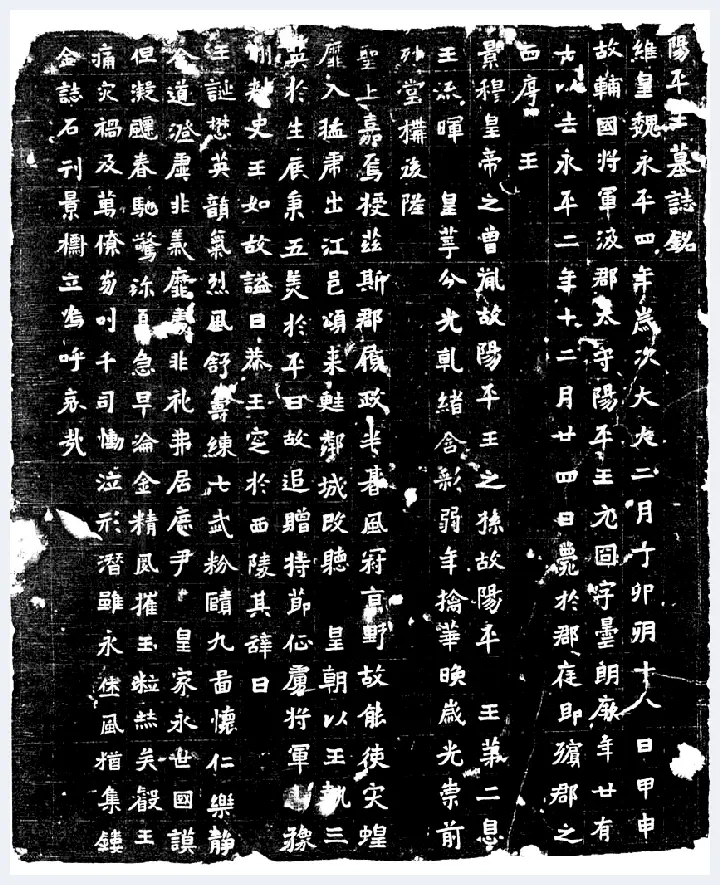 陽平王墓誌銘
維皇魏永平四年歲次大火二月丁卯朔十八日甲申
故輔國將軍汲郡太守陽平王元囧字曇朗廠年廿有
六以去永平二年十二月廿四日薨於郡庭即殯郡之
西序王
景穆皇帝之曾胤故陽平王之孫故陽平王第二息
王流暉皇萼分光乹緒含彰弱年擒華晚歲光崇前
列堂搆後陞
聖上嘉焉授茲斯郡復政半朞風冠京野故能使灾蝗
靡入猛肅出江邑頌來鮭鄰城改聽皇朝以王執三
英於生辰秉五美於平日故追贈持節征虜將軍豫
州刺史王如故謚曰恭王窆於西陵其辞曰
王誕懋英韻氣烈風舒籌練七武粉賾九畐懷仁樂静
含道澄虛非義靡非礼弗居庶尹皇家永世國謨
但凝飃春馳驚急早淪金精夙摧玉粒矣王
痛灾禍及萬僚千司慟泣形潛雖永風猶集鏤
金誌石刊景立嗚呼哀哉